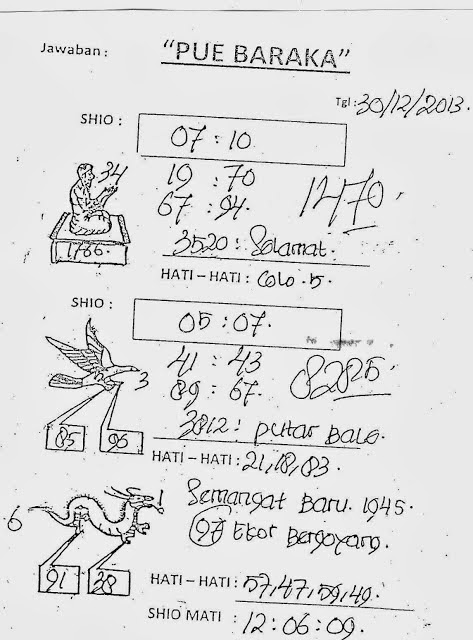 Jawaban : "PUE BARAKA"
Tgl : 30/12/2013.
SHIO : 07 : 10
34 19 : 70
67 : 94. 1470.
1766. 3520 : Selamat.
HATI – HATI : Colo .5.
SHIO : 05 : 07.
41 : 43
3 89 : 67. 82825
3812 : putar Balo.
85 96
HATI – HATI : 21,18,83.
1 Semangat Baru. 1945.
6 97 Ekor Bergoyang.
91 38 HATI – HATI : 57,47,59,49.
SHIO MATI : 12:06:09.